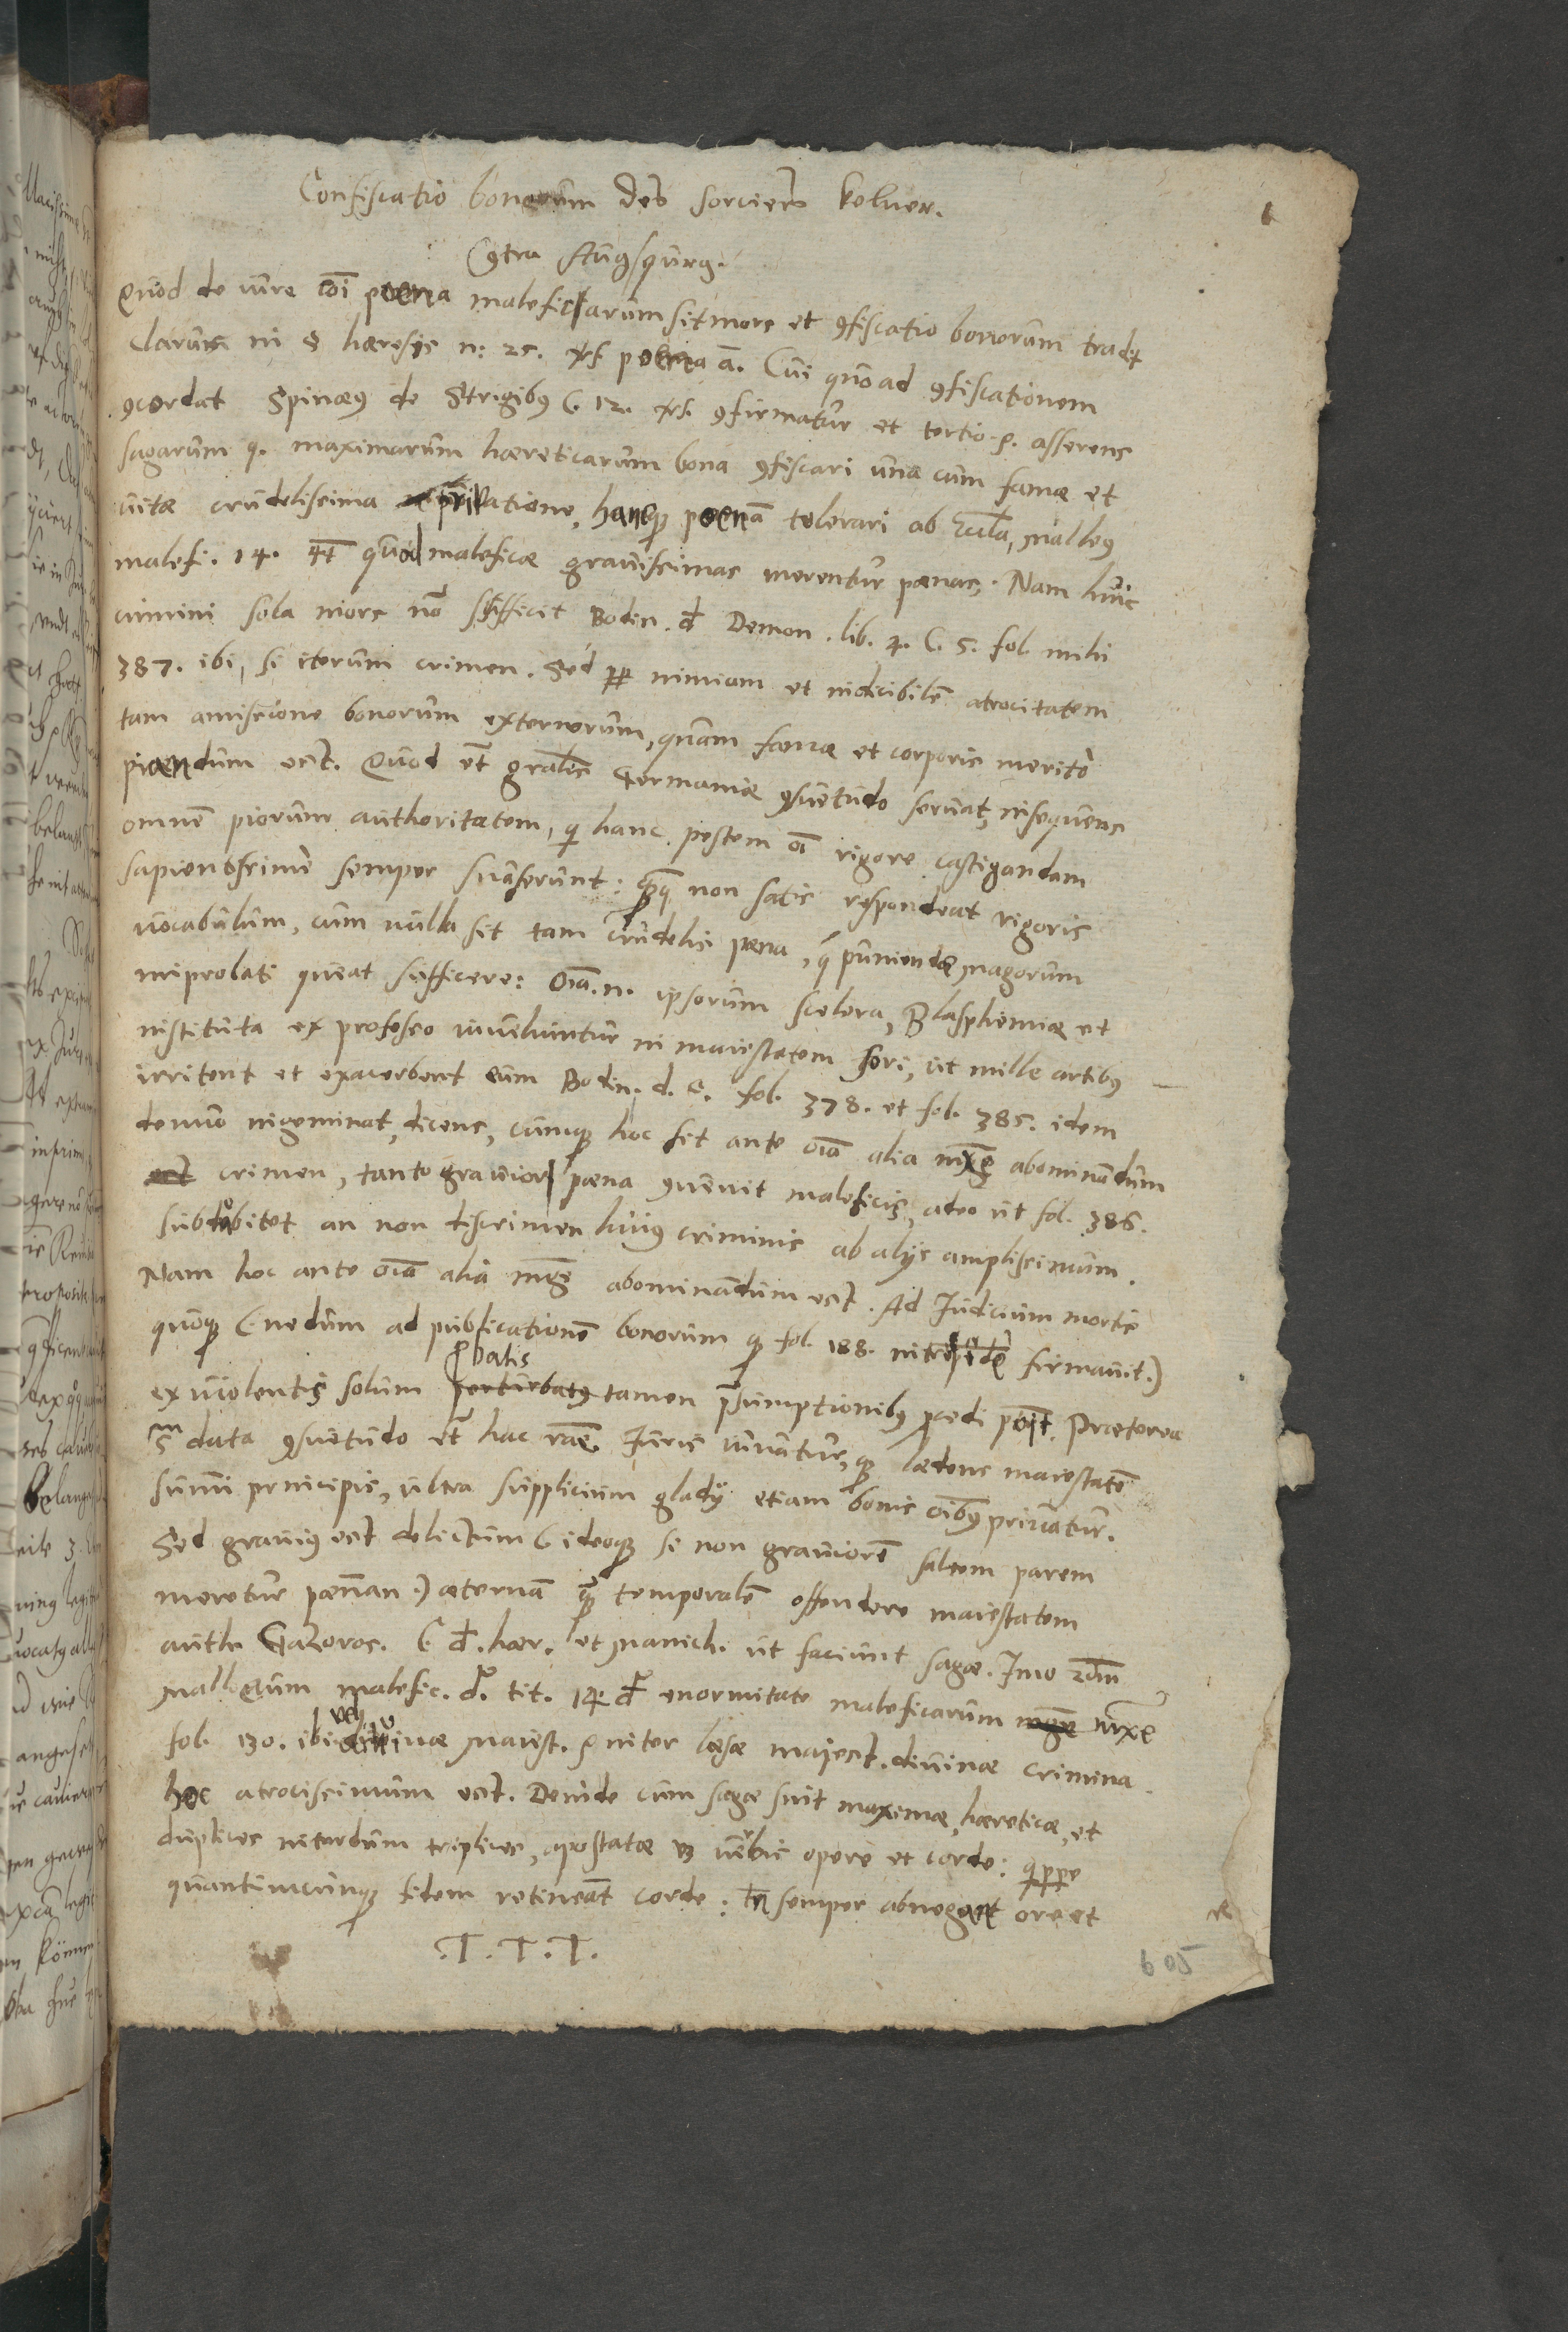 Confiscatio bonorum des sorciers kelner.
Contra Augspurg.
Quod de iure coi poena maleficarum sit mors et confiscatio bonorum tradit
Clarus in § haeresis n: 25. vers. poena a. Cui quo ad confiscationem
concordat Spinaeus de Strigibus C. 12. vers. confirmatur et tertio p. asserens
sagarum q. maximarum haereticarum bona confiscari una cum famae et
vitae crudelissima privatione, hancque poenam tolerari ab Ecclesia, Malleus
malefi. 14. quod maleficae gravissimas merentur poenas. Nam huic
crimini sola mors non sufficit Bodin. d Demon. lib. 4. C. 5. fol. mihi
387. ibi, si iterum crimen. Sed propter nimiam et indicibilem atrocitatem
tam amissione bonorum externorum, quam famae et corporis merito
piandum est. Quod et generalis Germaniae consuetudo servat, insequens
omnem piorum authoritatem, qui hanc pestem omni rigore castigandam
sapientissime semper suaserunt: quamquam non satis respondeat rigoris
vocabulum, cum nulla sit tam crudelis poena, quae puniendae magorum
improbati queat sufficere: Omnia n. ipsorum scelera, Blasphemiae et
instituta ex professo invehuntur in maiestatem fori, ut mille artibus
irritent et exacerbent eum Bodin. d. C. fol. 378. et fol. 385. idem
denuo ingeminat, dicens, cumque hoc sit ante omnia alia maxime abominandum
crimen, tanto gravior poena convenit maleficis, adeo ut fol. 386.
subdubitet an non discrimen huius criminis ab alijs amplissimum.
Nam hoc ante omnia alia abominandum est. Ad Iudicium mortis
quoque (nedum ad publicationem bonorum quod fol. 188. firmavit.)
ex violentis solum probatis tamen praesumptionibus procedi potest. Praeterea
data consuetudo et hac ratione Iuris iuvatur, quod laedens maiestatem
summi principis, ultra supplicium gladij etiam bonis omnibus privatur.
Sed gravius est delictum (ideoque si non graviorem saltem parem
meretur poenam.) aeternam quam temporalem offendere maiestatem
auth. Gazaros. C d. haer. et Manich. ut faciunt sagae. Imo secundum
Malleum malefic. d. tit. 14. d enormitate maleficarum maxime
fol. 130. ibi vel divinae Maiest. inter laesae majest. divinae crimina
hoc atrocissimum est. Deinde cum sagae sint maximae haereticae, et
duplices interdum triplices, apostatae verbis opere et corde: quippe
quantumcunque fidem retineant corde: tamen semper abnegant ore et
.T.T.T.
605